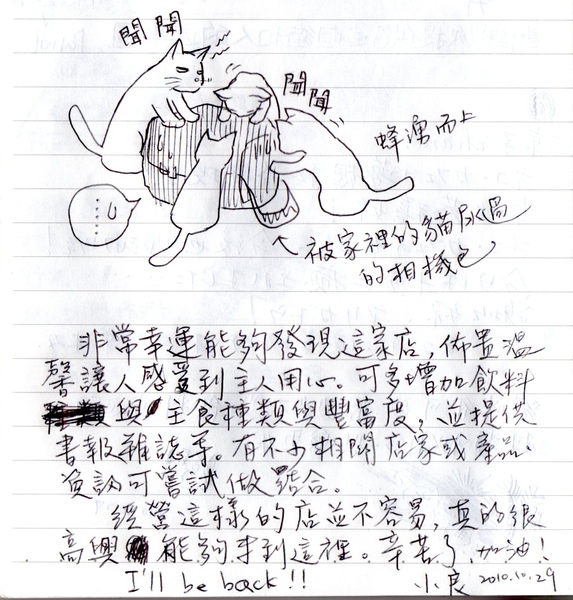 聞聞
聞聞
蜂湧而上
被家裡的貓尿過
的相機包
非常幸運能夠發現這家店，佈置溫
馨讓人感受到主人用心。可多增加飲料
與主食種類與豐富度，並提供
書報雜誌等。有不少相關店家或產品、
資訊可嘗試做結合。
經營這樣的店並不容易，真的很
高興能夠來到這裡。辛苦了，加油！
I'll be back!!
小良 2010.10.29